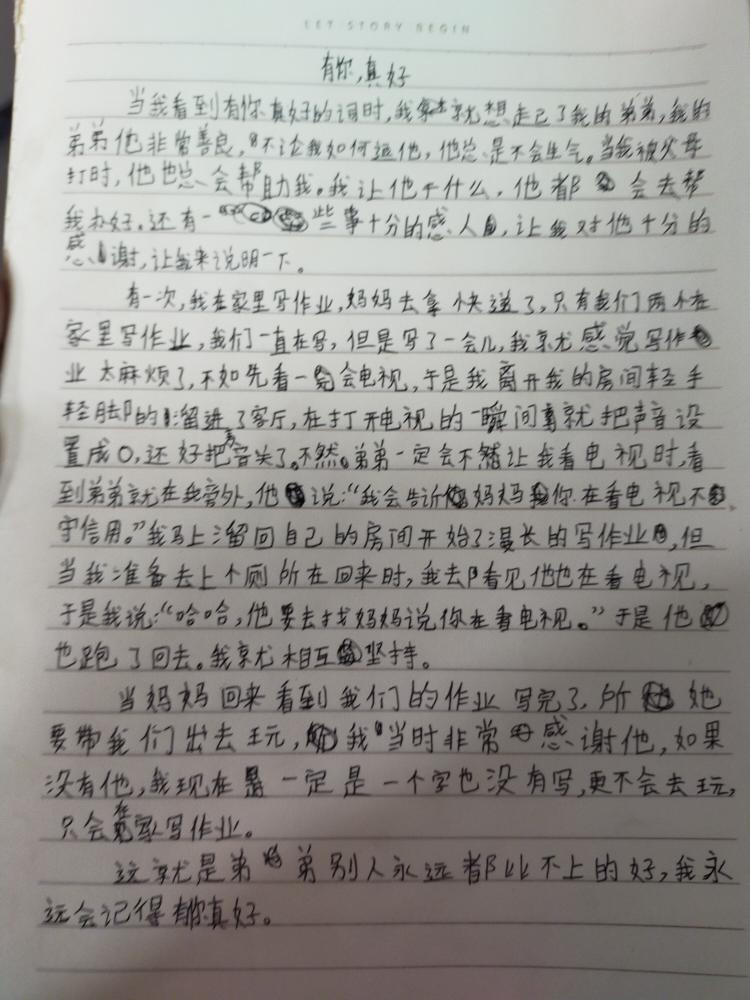 LET STORY BEGIN
有你,真好
当我看到有你真好的词时,我就想走己了我的弟弟,我的
弟弟他非常善良,不论我如何逗他,他总是不会生气。当我被父母
打时,他也总会帮助我。我让他干什么,他都会去帮
我办好。还有一些事十分的感人,让我对他十分的
感谢,让我来说明一下。
有一次,我在家里写作业,妈妈去拿快递了,只有我们两个在
家里写作业,我们一直在写,但是写了一会儿,我就感觉写作
业太麻烦了,不如先看一会电视,于是我离开我的房间轻手
轻脚的溜进了客厅,在打开电视的一瞬间就把声音设
置成0,还好把声音关了。不然。弟弟一定会不然让我看电视时,看
到弟弟就在我旁外,他说:“我会告诉妈妈你在看电视不
守信用。”我马上溜回自己的房间开始了漫长的写作业,但
当我准备去上个厕所在回来时,我去看见他也在看电视,
于是我说:“哈哈,他要去找妈妈说你在看电视。”于是他
也跑了回去。我就相互坚持。
当妈妈回来看到我们的作业写完了,所她
要带我们出去玩,我当时非常感谢他,如果
没有他,我现在一定是一个字也没有写,更不会去玩,
只会在家写作业。
这就是弟弟别人永远都比不上的好,我永
远会记得有你真好。